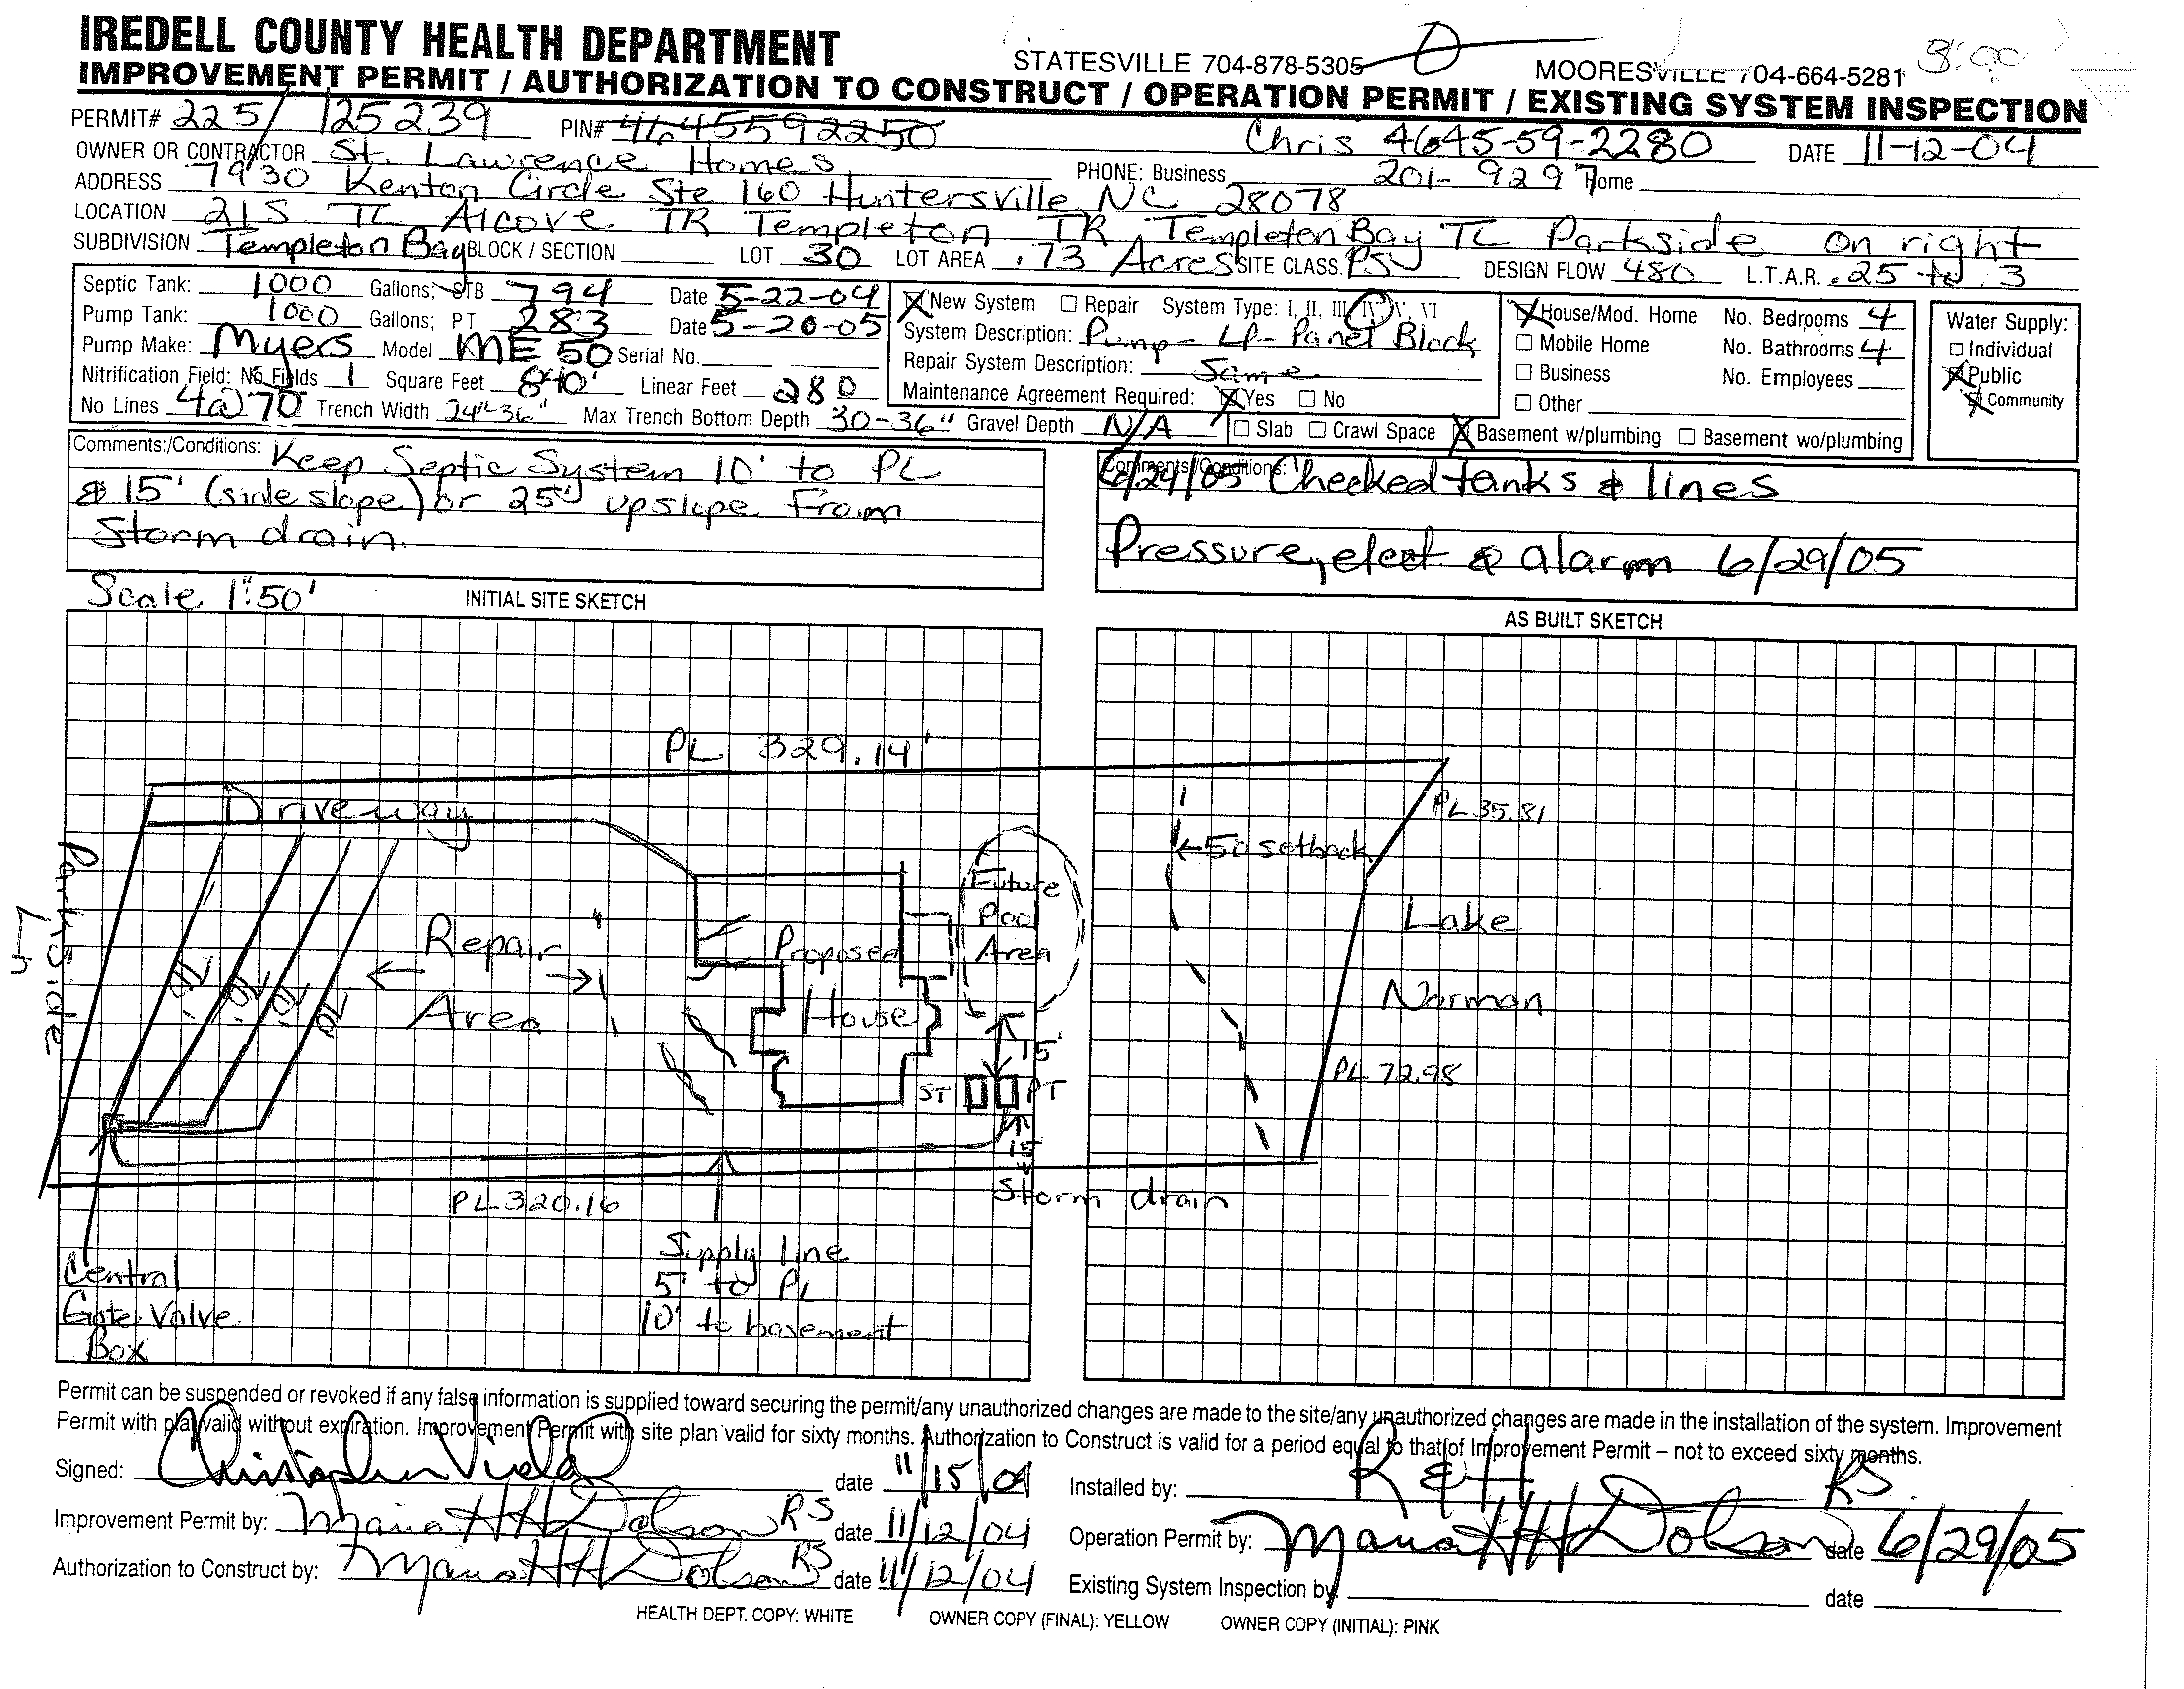 IREDELL COUNTY HEALTH DEPARTMENT
STATESVILLE 704-878-5305 MOORESVILLE 704-664-5281 8:00
IMPROVEMENT PERMIT / AUTHORIZATION TO CONSTRUCT / OPERATION PERMIT / EXISTING SYSTEM INSPECTION
PERMIT# 225/ 125239 PIN# 4645592250 Chris 4645-59-2280 DATE 11-12-04
OWNER OR CONTRACTOR St. Lawrence Homes PHONE: Business 201-9297 Home
ADDRESS 7930 Kenton Circle Ste 160 Huntersville NC 28078
LOCATION 21S TL Alcove TR Templeton TR Templeton Bay TL Parkside on right
SUBDIVISION Templeton Bay BLOCK / SECTION LOT 30 LOT AREA .73 Acres SITE CLASS. PS DESIGN FLOW 480 L.T.A.R. .25 to .3
Septic Tank: 1000 Gallons; STB 794 Date 5-22-04
Pump Tank: 1000 Gallons; PT 283 Date 5-20-05
Pump Make: Myers Model ME 50 Serial No.
Nitrification Field: No Fields 1 Square Feet 840' Linear Feet 280
No Lines 4@70 Trench Width 24"-36" Max Trench Bottom Depth 30-36" Gravel Depth N/A
New System Repair System Type: I, II, III, IV, V, VI
System Description: Pump - LP - Panel Block
Repair System Description: Same
Maintenance Agreement Required: Yes No
House/Mod. Home No. Bedrooms 4
Mobile Home No. Bathrooms 4
Business No. Employees
Other
Slab Crawl Space Basement w/plumbing Basement wo/plumbing
Water Supply:
Individual
Public
Community
Comments:/Conditions: Keep Septic System 10' to PL
& 15' (side slope) or 25' upslope From
Storm drain.
Comments/Conditions: 6/29/05 Checked tanks & lines
Pressure, elect & alarm 6/29/05
Scale 1":50' INITIAL SITE SKETCH
AS BUILT SKETCH
PL 329.14'
Driveway
PL 35.81
←50 setback
Parkside
Repair
Area
Proposed
House
Future
Pool
Area
Lake
Norman
70
70
70
70
15'
ST PT
15
PL 72.98
PL 320.16
Storm drain
Supply line
5' to PL
10' to basement
Central
Gate Valve
Box
Permit can be suspended or revoked if any false information is supplied toward securing the permit/any unauthorized changes are made to the site/any unauthorized changes are made in the installation of the system. Improvement
Permit with plat valid without expiration. Improvement Permit with site plan valid for sixty months. Authorization to Construct is valid for a period equal to that of Improvement Permit – not to exceed sixty months.
Signed: Christopher Vidal date 11/15/04 Installed by: R & H
Improvement Permit by: Maria HH Dobson RS date 11/12/04 Operation Permit by: Maria HH Dobson RS date 6/29/05
Authorization to Construct by: Maria HH Dobson RS date 11/12/04 Existing System Inspection by date
HEALTH DEPT. COPY: WHITE OWNER COPY (FINAL): YELLOW OWNER COPY (INITIAL): PINK